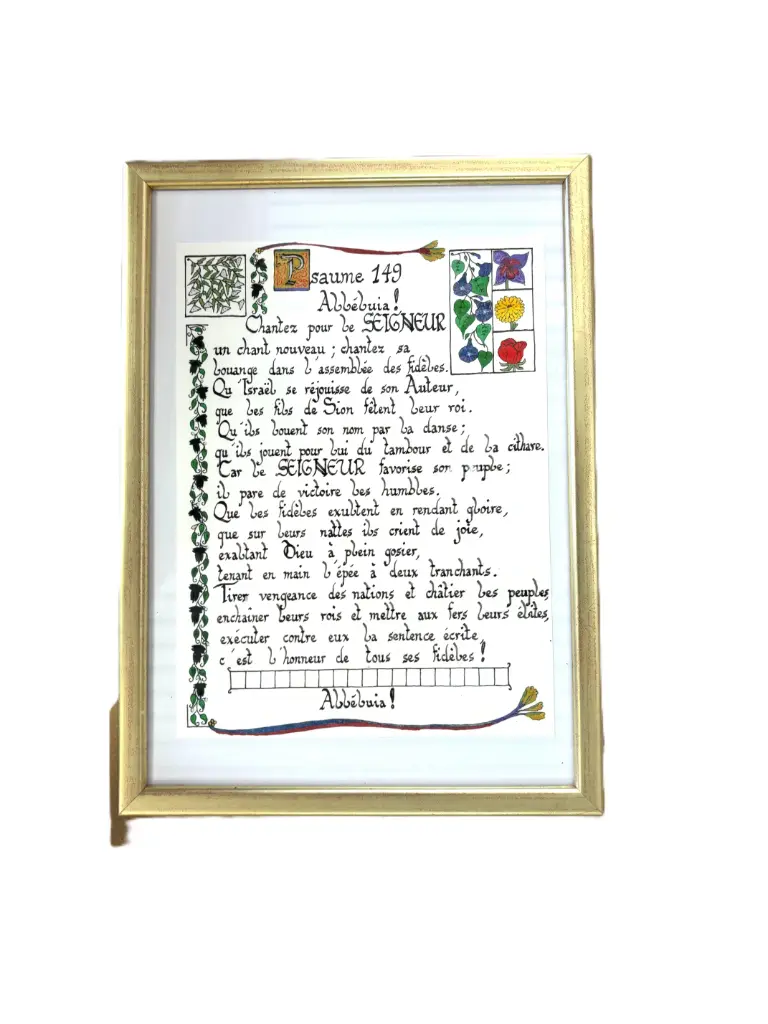 Psaume 149
Allébuia !
Chantez pour le SEIGNEUR
un chant nouveau ; chantez sa
louange dans l'assemblée des fidèles.
Qu'Israël se réjouisse de son Auteur,
que les fils de Sion fêtent leur roi.
Qu'ils louent son nom par la danse ;
qu'ils jouent pour lui du tambour et de la cithare.
Car le SEIGNEUR favorise son peuple ;
il pare de victoire les humbles.
Que les fidèles exultent en rendant gloire,
que sur leurs nattes ils crient de joie,
exaltant Dieu à plein gosier,
tenant en main l'épée à deux tranchants.
Tirer vengeance des nations et châtier les peuples,
enchaîner leurs rois et mettre aux fers leurs élites,
exécuter contre eux la sentence écrite,
c'est l'honneur de tous ses fidèles !
Allébuia !